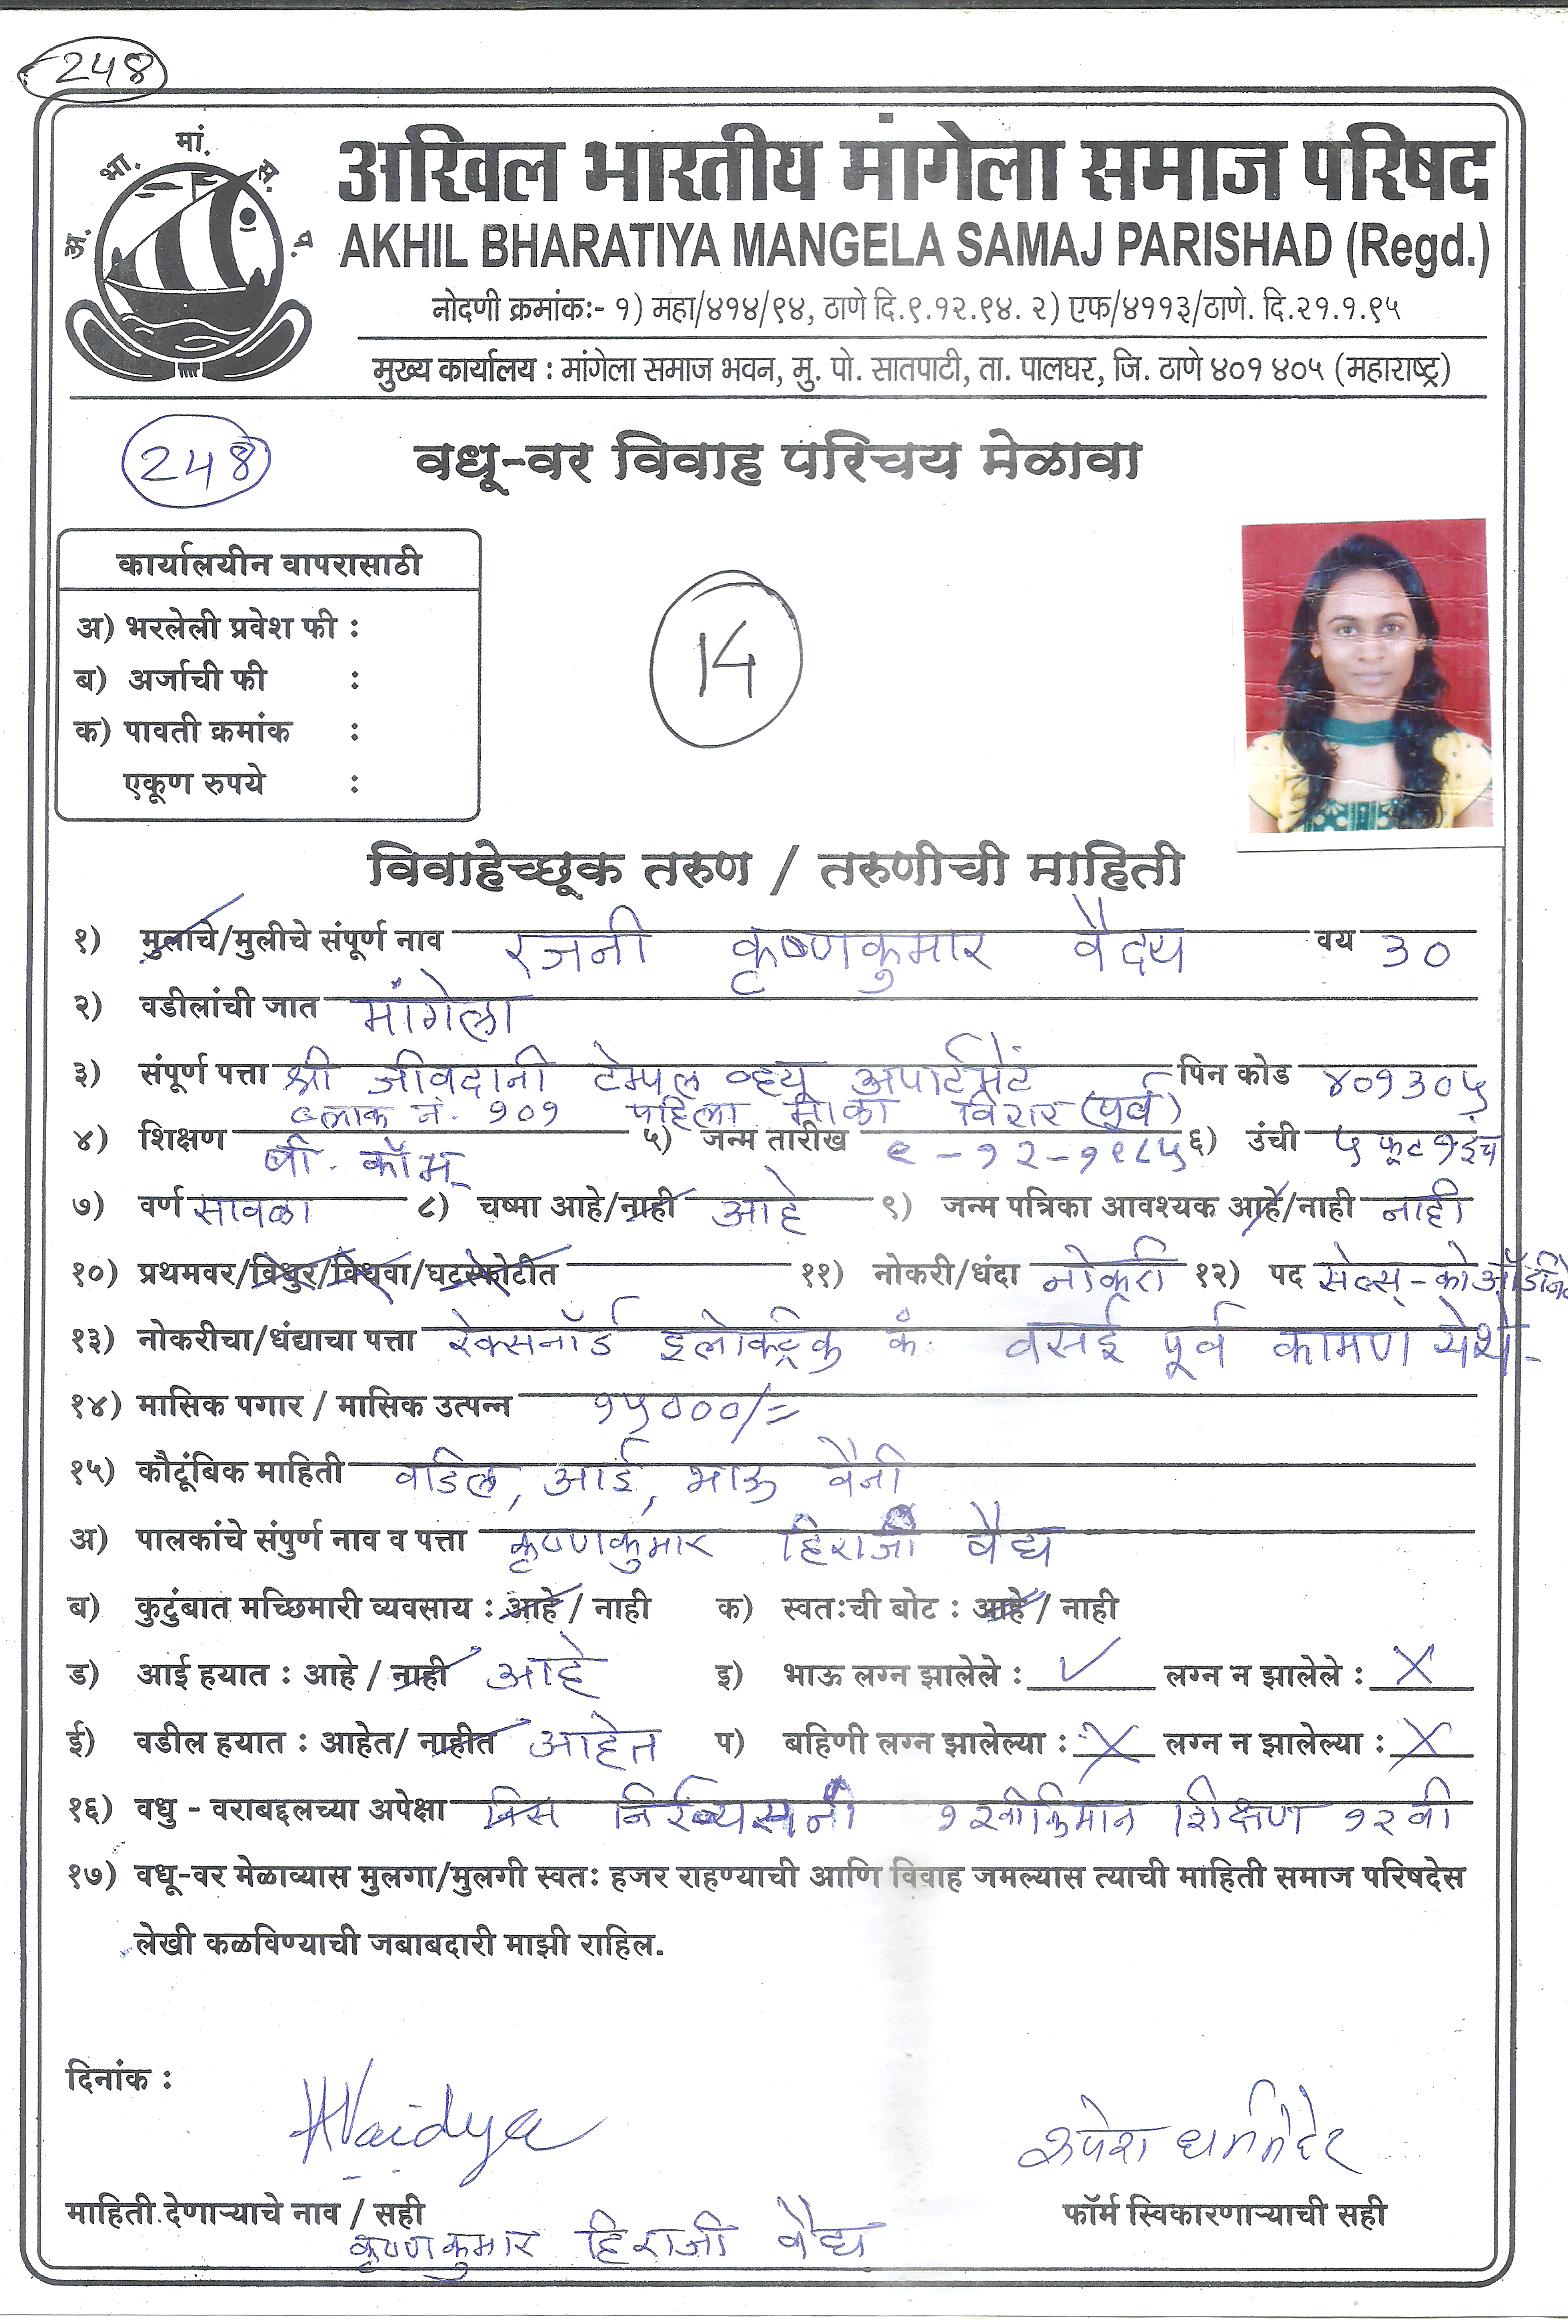 248
अ. भा. मां. स. प.
अखिल भारतीय मांगेला समाज परिषद
AKHIL BHARATIYA MANGELA SAMAJ PARISHAD (Regd.)
नोदणी क्रमांक:- १) महा/४१४/९४, ठाणे दि.९.१२.९४. २) एफ/४११३/ठाणे. दि.२१.१.९५
मुख्य कार्यालय : मांगेला समाज भवन, मु. पो. सातपाटी, ता. पालघर, जि. ठाणे ४०१ ४०५ (महाराष्ट्र)
248 वधू-वर विवाह परिचय मेळावा
कार्यालयीन वापरासाठी
अ) भरलेली प्रवेश फी :
ब) अर्जाची फी :
क) पावती क्रमांक :
एकूण रुपये :
14
विवाहेच्छूक तरुण / तरुणीची माहिती
१) मुलाचे/मुलीचे संपूर्ण नाव रजनी कृष्णकुमार वैदय वय ३०
२) वडीलांची जात मांगेला
३) संपूर्ण पत्ता श्री जीवदानी टेम्पल व्ह्यू अपार्टमेंट पिन कोड ४०१३०५
ब्लाक नं. १०१ पहिला माळा विरार (पूर्व)
४) शिक्षण बी. कॉम. ५) जन्म तारीख ९-१२-१९८५ ६) उंची ५ फूट १ इंच
७) वर्ण सावळा ८) चष्मा आहे/नाही आहे ९) जन्म पत्रिका आवश्यक आहे/नाही नाही
१०) प्रथमवर/विधुर/विधवा/घटस्फोटीत ११) नोकरी/धंदा नोकरी १२) पद सेल्स-
१३) नोकरीचा/धंद्याचा पत्ता रेक्सनॉर्ड इलेक्ट्रिक कं. वसई पूर्व कामण येथे-
१४) मासिक पगार / मासिक उत्पन्न १५०००/=
१५) कौटूंबिक माहिती वडिल, आई, भाऊ वैनी
अ) पालकांचे संपुर्ण नाव व पत्ता कृष्णकुमार हिराजी वैद्य
ब) कुटुंबात मच्छिमारी व्यवसाय : आहे / नाही क) स्वतःची बोट : आहे / नाही
ड) आई हयात : आहे / नाही आहे इ) भाऊ लग्न झालेले : ✓ लग्न न झालेले : X
ई) वडील हयात : आहेत/ नाहीत आहेत प) बहिणी लग्न झालेल्या : X लग्न न झालेल्या : X
१६) वधु - वराबद्दलच्या अपेक्षा निर्व्यसनी शिक्षण १२वी
१७) वधू-वर मेळाव्यास मुलगा/मुलगी स्वतः हजर राहण्याची आणि विवाह जमल्यास त्याची माहिती समाज परिषदेस
लेखी कळविण्याची जबाबदारी माझी राहिल.
दिनांक :
Vaidya
माहिती देणाऱ्याचे नाव / सही फॉर्म स्विकारणाऱ्याची सही
कृष्णकुमार हिराजी वैद्य